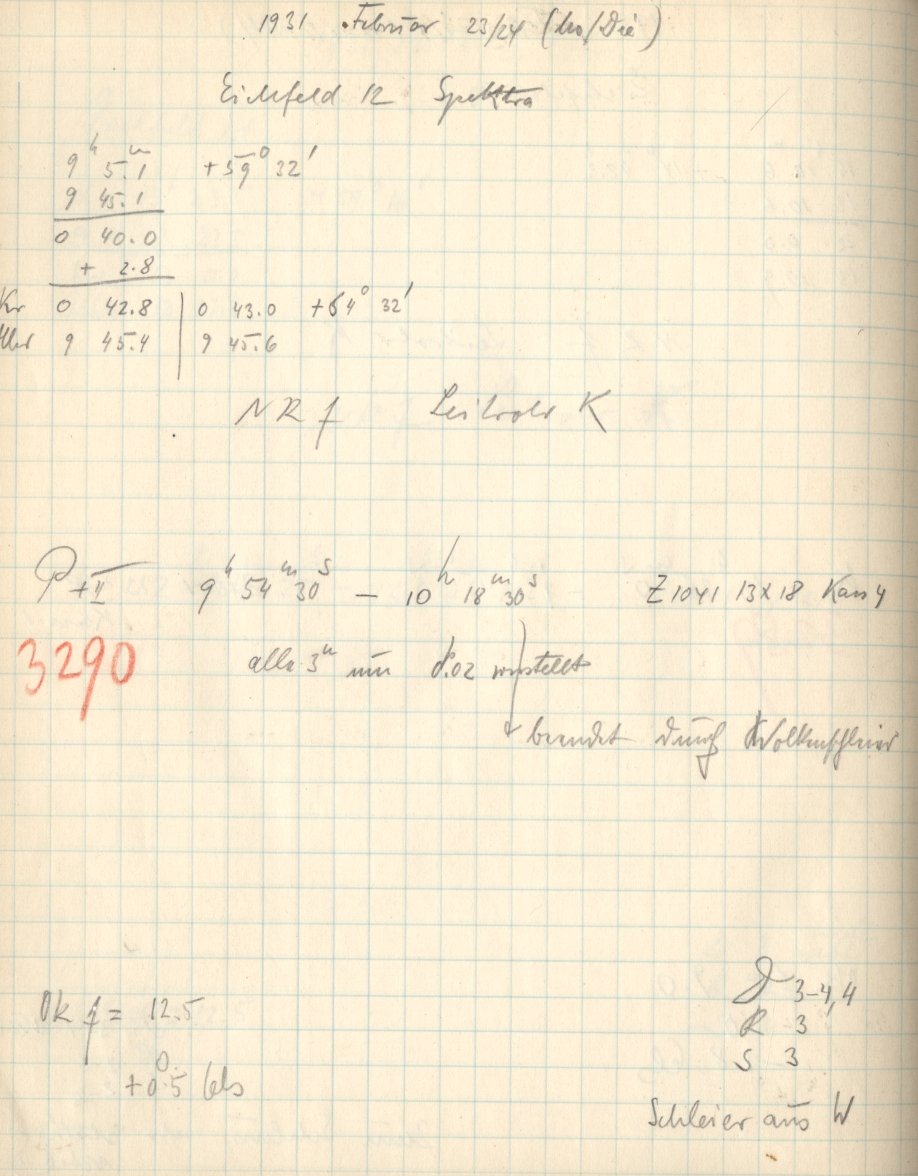 1931 Februar 23/24 (Mo/Die)
Eichfeld 12 Spektra
9ʰ 5.1ᵐ +59° 32'
9 45.1
0 40.0
+ 2.8
0 42.8 | 0 43.0 +64° 32'
9 45.4 | 9 45.6
NR f Leitrohr K
P +II 9ʰ 54ᵐ 30ˢ — 10ʰ 18ᵐ 30ˢ Z 1041 13x18 Kass 4
3290 alle 3ᵐ um 0.02 verstellt
beendet durch Wolkenschleier
Ok f = 12.5
+0.5
D 3-4, 4
R 3
S 3
Schleier aus W